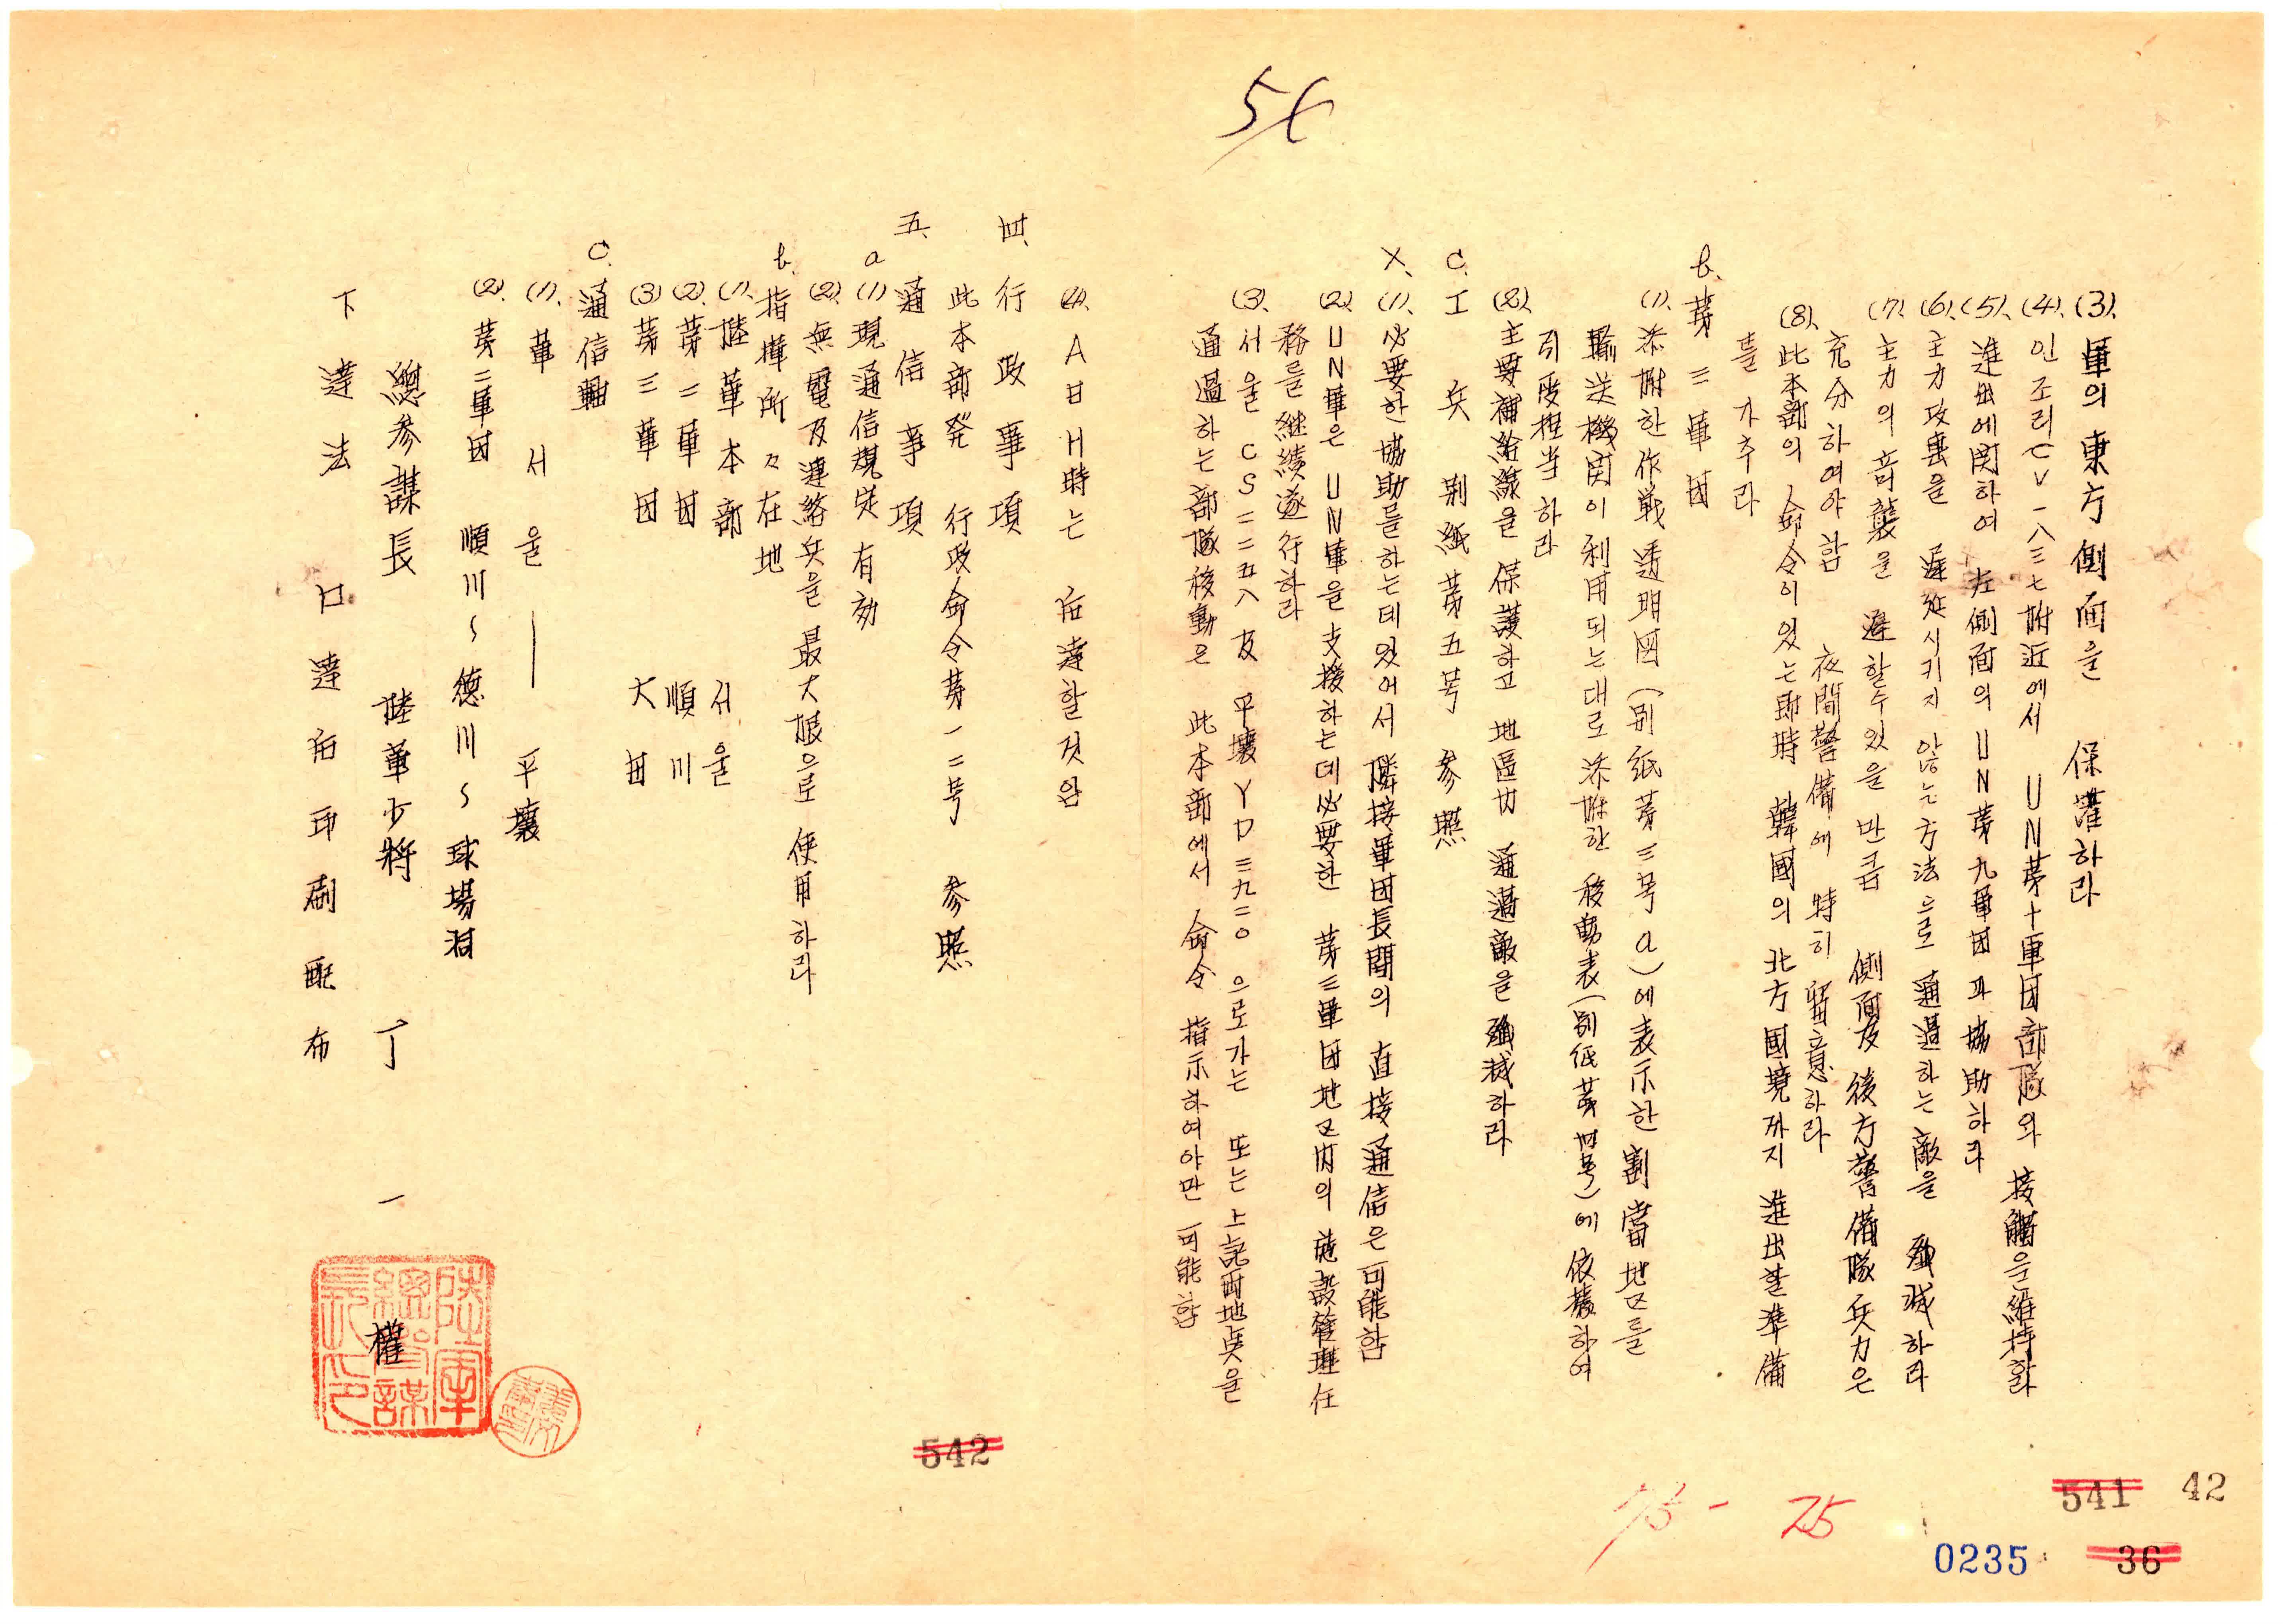 56
(3). 軍의 東方側面을 保護하라
(4). 인조리 CV 一八三七 附近에서 UN第十軍団部隊와 接觸을 維持할
(5). 進出에 関하여 左側面의 UN第九軍団과 協助하라
(6). 主力攻擊을 遲延시키지 않는 方法으로 通過하는 敵을 殲滅하라
(7). 主力의 奇襲을 避할수있을 만큼 側面及 後方警備隊兵力은
充分하여야함 夜間警備에 特히 留意하라
(8). 此本部의 命令이 있는 即時 韓國의 北方國境까지 進出할 準備
를 가추라
b. 第三軍団
(1). 添附한 作戦透明図(別紙第三号 a)에 表示한 割當地区를
輸送機関이 利用되는대로 添附한 移動表(別紙第四号)에 依據하여
引受担当하라
(2). 主要補給線을 保護하고 地區内 通過敵을 殲滅하라
C. 工兵 別紙第五号 参照
X. (1). 必要한 協助를 하는데 있어서 隣接軍団長間의 直接通信은 可能함
(2). UN軍은 UN軍을 支援하는데 必要한 第三軍団地区内의 施設管理任
務를 継続遂行하라
(3). 서울 CS 二二五八 及 平壤 YD 三九二0 으로가는 또는 上記両地点을
通過하는 部隊移動은 此本部에서 命令 指示하여야만 可能함
(4). A日 H時는 后達할것임
四. 行政事項
此本部発 行政命令第一二号 参照
五. 通信事項
a (1) 現通信規定 有効
(2). 無電及連絡兵을 最大限으로 使用하라
b. 指揮所々在地
(1). 陸軍本部 서울
(2). 第二軍団 順川
(3) 第三軍団 大田
C. 通信軸
(1). 軍 서울 — 平壤
(2). 第二軍団 順川~德川~球場洞
總参謀長 陸軍少将 丁 一 權
下達法 口達后印刷配布
陸軍總參謀長印
542
541 42
75 - 75
0235 36